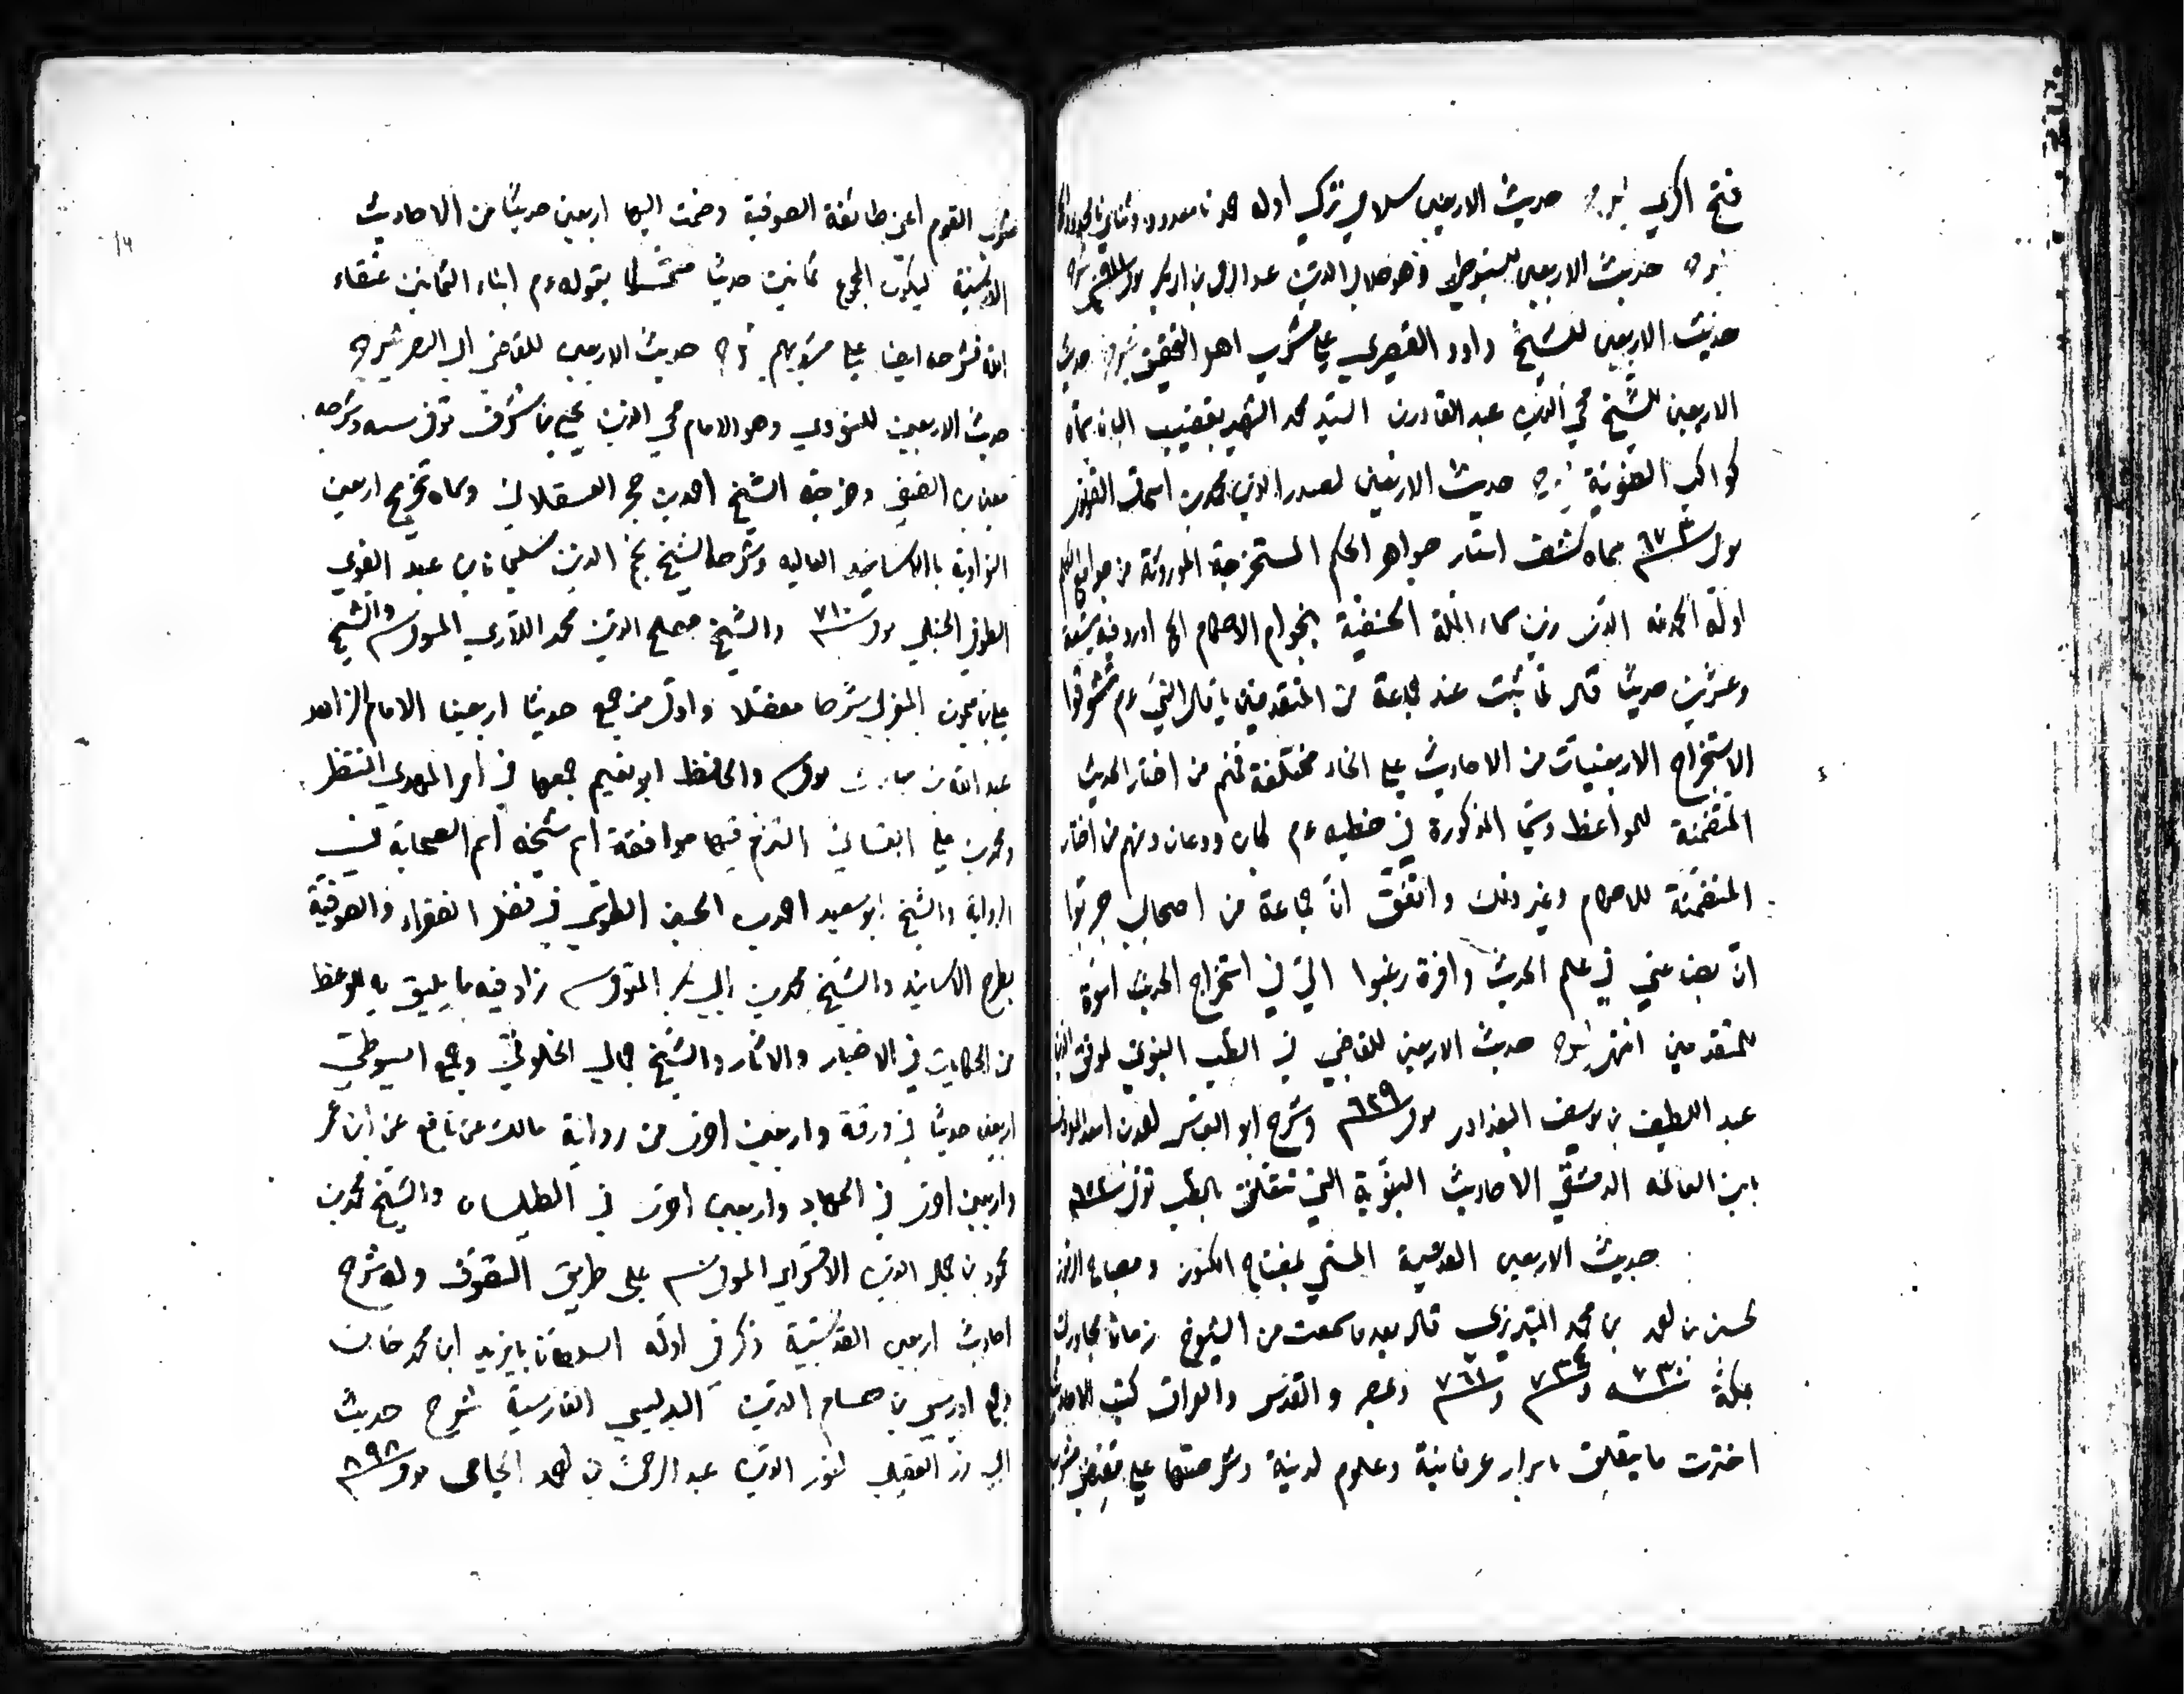 فتح اكري شرح حديث الاربعين سلامي تركي اوله حمد نامعدود وثناي نامحدود
شرح حديث الاربعين للسيوطي وهو جلال الدين عبد الرحمن بن ابي بكر موفى ٩١١ شرح
حديث الاربعين للشيخ داود القيصري على مشرب اهل التحقيق شرح حديث
الاربعين للشيخ محي الدين عبد القادر بن السيد محمد الشهير بقضيب البان سماه
كواكب شرح حديث الاربعين لصدر الدين محمد بن اسحاق القونوي
موفى ٦٧٣ سماه كشف استار جواهر الحكم المستخرجة الموروثة من جوامع الكلم
اوله الحمد لله الذي زين سماء الملة الحنفية بنجوم الاحكام الخ اورد فيه تسعة
وعشرين حديثا قال لما ثبت عند جماعة من المتقدمين ما قال النبي ءم تشوقوا
الاستخراج الاربعينيات من الاحاديث على انحاء مختلفة فمنهم من اختار الحديث
المتضمنة للمواعظ وسيما المذكورة في خطبه ءم كابن ودعان ومنهم من اختار
المتضمنة للاحكام وغير ذلك واتفق ان جماعة من اصحابي جربوا
ان بضاعتي في علم الحديث وافرة رغبوا الي في استخراج الحديث اسوة
للمتقدمين انتهى شرح حديث الاربعين للقاضي في الطب النبوي لموفق الدين
عبد اللطيف بن يوسف البغدادي موفى ٦٢٩ وشرح ابو العباس احمد بن اسعد المعروف
بابن العالمه الدمشقي الاحاديث النبوية التي تتعلق بالطب توفى ٦٥٢
حديث الاربعين القدسية المسمى بمفتاح الكنوز ومصباح الرموز
لحسن بن احمد بن محمد التبريزي قال بعد ما سمعت من الشيوخ زمان مجاورتي
بمكة سنه ٧٣٠ و ٧٣٤ و ٧٦١ وبمصر والقدس والعراق كتب الاحاديث
اخترت ما يتعلق باسرار عرفانية وعلوم لدنية وشرحتها على مقتضى مشرب
مشرب القوم اعنى طائفة الصوفية وضمت اليها اربعين حديثا من الاحاديث
القدسية ليكون المجموع ثمانين حديثا متمسكا بقوله ءم ابناء الثمانين عتقاء
الله فشرحه ايضا على مشربهم شرح حديث الاربعين للقاضي ابي النصر شرح
حديث الاربعين للنووي وهو الامام محي الدين يحيى بن شرف توفى سنه وشرحه
معين بن الصفي وخرجه الشيخ احمد بن حجر العسقلاني وسماه تخريج اربعين
النواوية بالاسانيد العاليه وشرحها الشيخ نجم الدين سليمان بن عبد القوي
الطوفي الحنبلي موفى ٧١٠ والشيخ مصلح الدين محمد اللاري المتوفى سنه والشيخ
على بن ميمون المغربي شرحا مفصلا واول من جمع حديثا اربعينا الامام الزاهد
عبد الله بن مبارك موفى سنه والحافظ ابو نعيم جمعها في امر المهدي المنتظر
ومحمد بن علي الغساني التزم فيها موافقة اسم شيخه اسم الصحابة في
الرواية والشيخ ابو سعيد احمد بن الحسين الطوسي في فضل الفقراء والصوفية
بطرح الاسانيد والشيخ محمد بن ابي بكر المتوفى سنه زاد فيه ما يليق به للوعظ
من الحكايات في الاخبار والاثار والشيخ جمالي الخلوتي وجمع السيوطي
اربعين حديثا في ورقة واربعين اخرى من رواية مالك عن نافع عن ابن عمر
واربعين اخرى في الجهاد واربعين اخرى في الطيلسان والشيخ محمد بن
محمود بن جمال الدين الاقسرايي الموفى سنه على طريق التصوف وله شرح
احاديث اربعين القدسية ذكر في اوله السلطان بايزيد ابن محمد خان
وجمع ادريس بن حسام الدين البدليسي الفارسية شرح حديث
ابي رزين العقيلي لنور الدين عبد الرحمن بن احمد الجامي موفى ٨٩٨